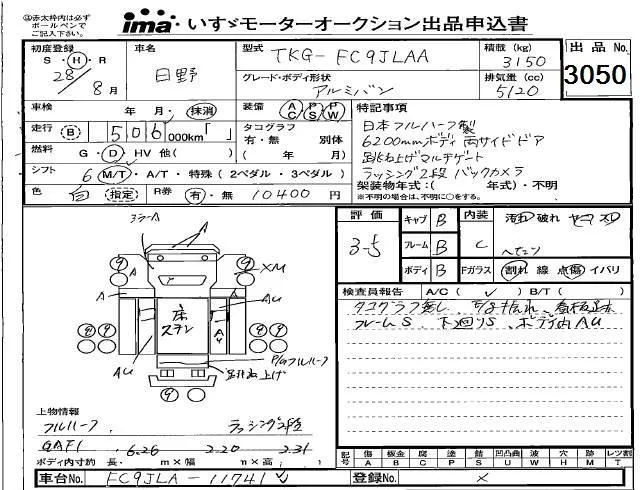 ◎赤太枠内は必ず
ボールペンで
ご記入下さい
ima いすゞモーターオークション出品申込書
初度登録
S・H・R
28/8月
車名
日野
型式
TKG-FC9JLAA
積載(kg)
3150
出品No.
3050
グレード・ボディ形状
アルミバン
排気量(cc)
5120
車検 年 月・抹消
装備 AC PS PW
特記事項
走行 B 506000km「 」
タコグラフ
有・無 別体
( 年 月)
日本フルハーフ製
6200mmボディ 両サイドドア
跳ね上げマルチゲート
ラッシング2段 バックカメラ
燃料 G・D・HV 他( )
シフト 6 M/T・A/T・特殊(2ペダル・3ペダル)
架装物年式:( 年式)・不明
※不明の場合は、不明に○をする。
色 白 指定 R券 有・無 10400円
評価
3-5
キャブ B
フレーム B
ボディ B
内装 C
汚れ 破れ
Fガラス 割れ 線 点傷 イバリ
検査員報告 A/C( ✓ ) B/T( )
フレームS、下廻りS、ボディ内AU
ミラーA
A
A
XM
A
AU
床
ステン
AU
P/Gフルハーフ
跳ね上げ
上物情報
フルハーフ ラッシング2段
GAF1 6.26 2.20 2.31
ボディ内寸約 長・ m×幅 m×高( )m
記号 傷A 板金B 腐C 塗P 錆S 凹U 凸曲 波W 穴H 跡M レツ割T
車台No. FC9JLA-11741
登録No. ×